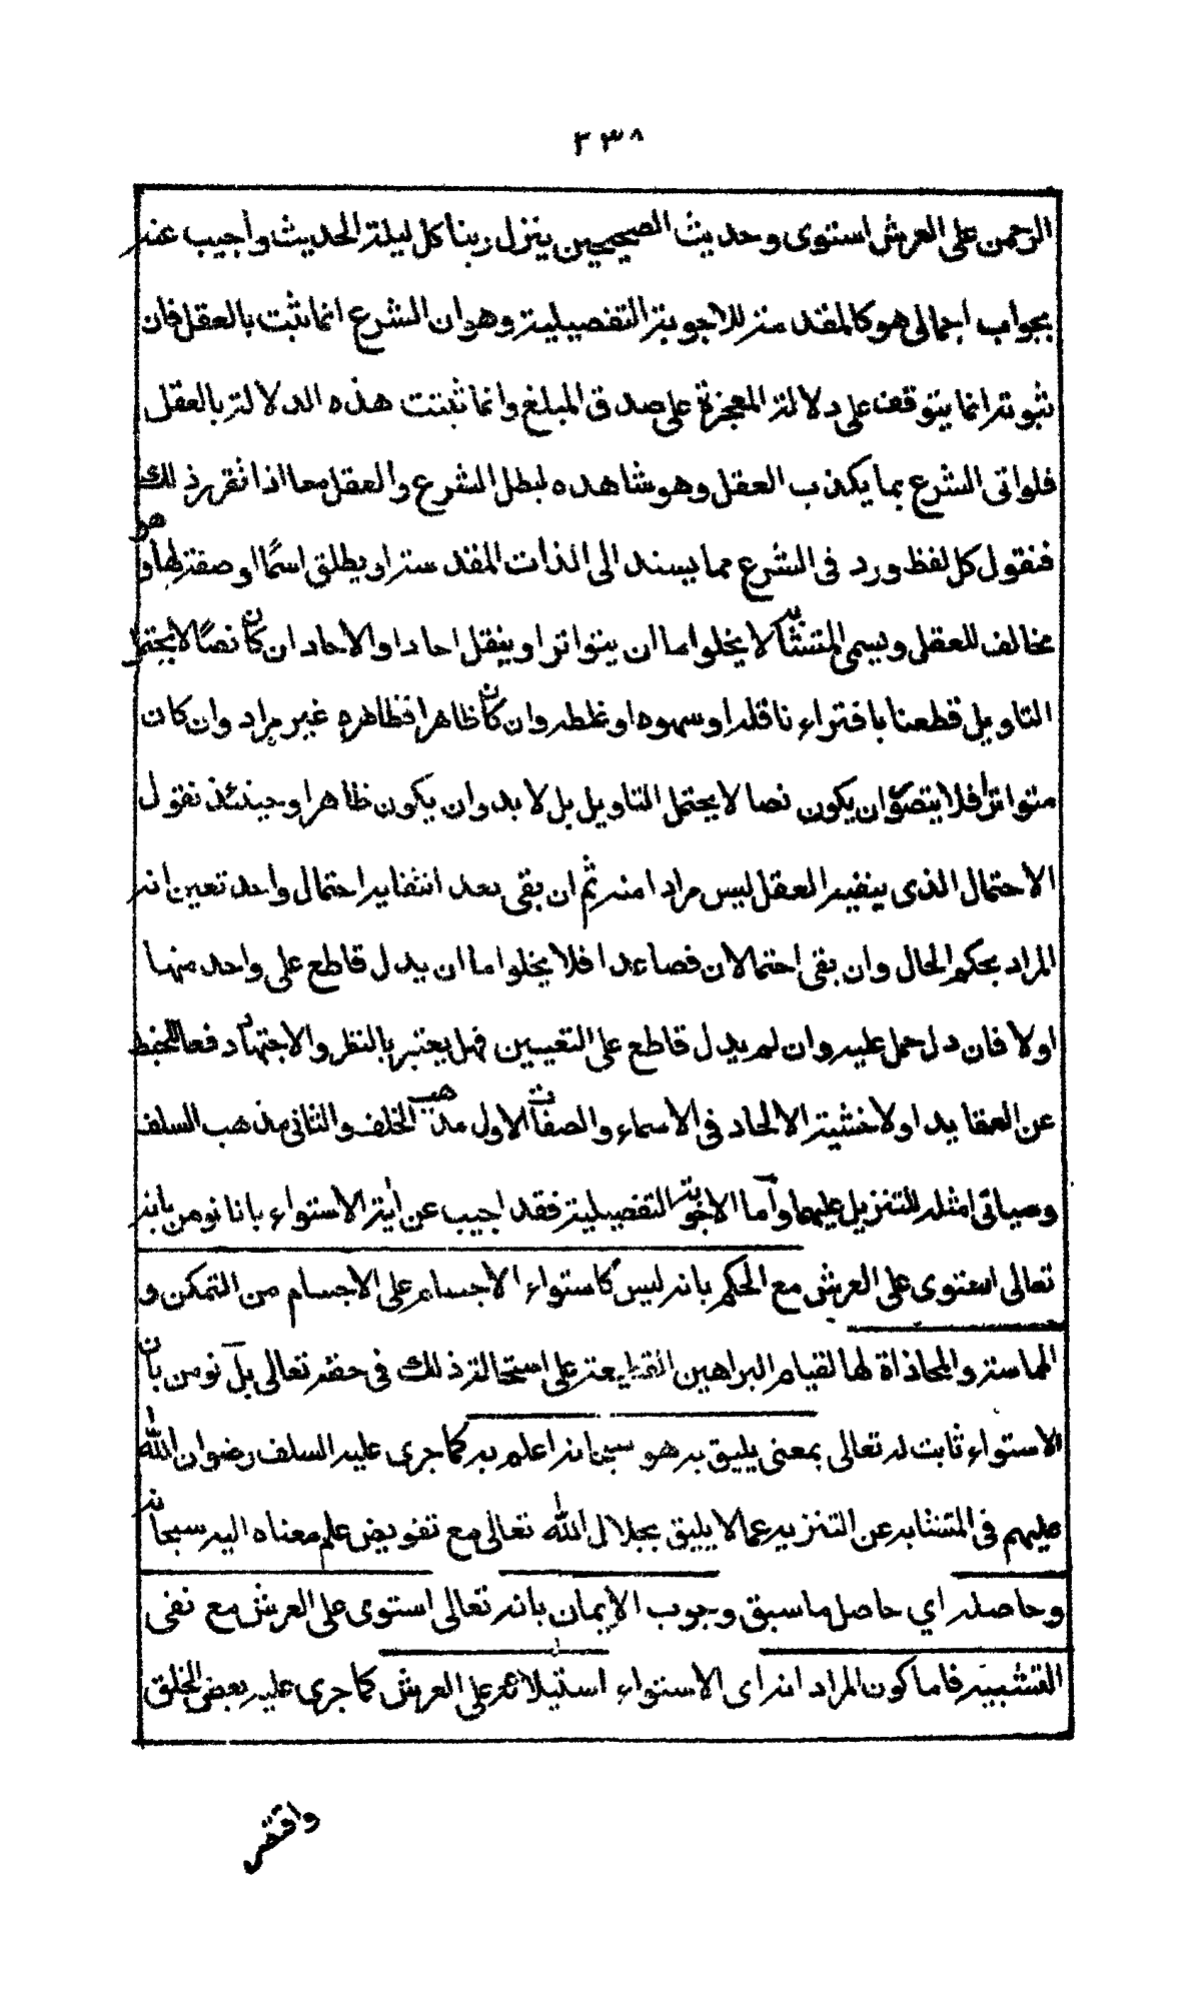 ٢٣٨
الرحمن على العرش استوى وحديث الصحيحين ينزل ربنا كل ليلة الحديث وأجيب عنه
بجواب اجمالى هو كالمقدمة للاجوبة التفصيلية وهو ان الشرع انما ثبت بالعقل فان
ثبوته انما يتوقف على دلالة المعجزة على صدق المبلغ وانما ثبتت هذه الدلالة بالعقل
فلو اتى الشرع بما يكذب العقل وهو شاهده لبطل الشرع والعقل معا اذا تقرر ذلك
فنقول كل لفظ ورد فى الشرع مما يسند الى الذات المقدسة او يطلق اسمًا او صفة لها وهو
مخالف للعقل ويسمى المتشابه لا يخلوا اما ان يتواتر او ينقل احادا والاحاد ان كان نصًا لا يحتمل
التاويل قطعنا بافتراء ناقله او سهوه او غلطه وان كان ظاهرا فظاهره غير مراد وان كان
متواترا فلا يتصور ان يكون نصا لا يحتمل التاويل بل لا بد وان يكون ظاهرا وحينئذ نقول
الاحتمال الذى ينفيه العقل ليس مرادا منه ثم ان بقى بعد انتفايه احتمال واحد تعين انه
المراد بحكم الحال وان بقى احتمالان فصاعدا فلا يخلوا اما ان يدل قاطع على واحد منها
اولا فان دل حمل عليه وان لم يدل قاطع على التعيين فهل يعتبر بالنظر والاجتهاد دفعا للخبط
عن العقايد اولا خشية الالحاد فى الاسماء والصفات الاول مذهب الخلف والثانى مذهب السلف
وسياتى امثلة للتنزيل عليهما وأما الاجوبة التفصيلية فقد اجيب عن اية الاستواء بانا نومن بانه
تعالى استوى على العرش مع الحكم بانه ليس كاستواء الاجسام على الاجسام من التمكن و
المماسة والمحاذاة لها لقيام البراهين القطعية على استحالة ذلك فى حقه تعالى بل نومن بان
الاستواء ثابت له تعالى بمعنى يليق به هو سبحانه اعلم به كما جرى عليه السلف رضوان الله
عليهم فى المتشابه عن التنزيه عما لا يليق بجلال الله تعالى مع تفويض علم معناه اليه سبحانه
وحاصله اي حاصل ما سبق وجوب الايمان بانه تعالى استوى على العرش مع نفى
التشبيه فاما كون المراد انه اى الاستواء استيلائه على العرش كما جرى عليه بعض الخلق